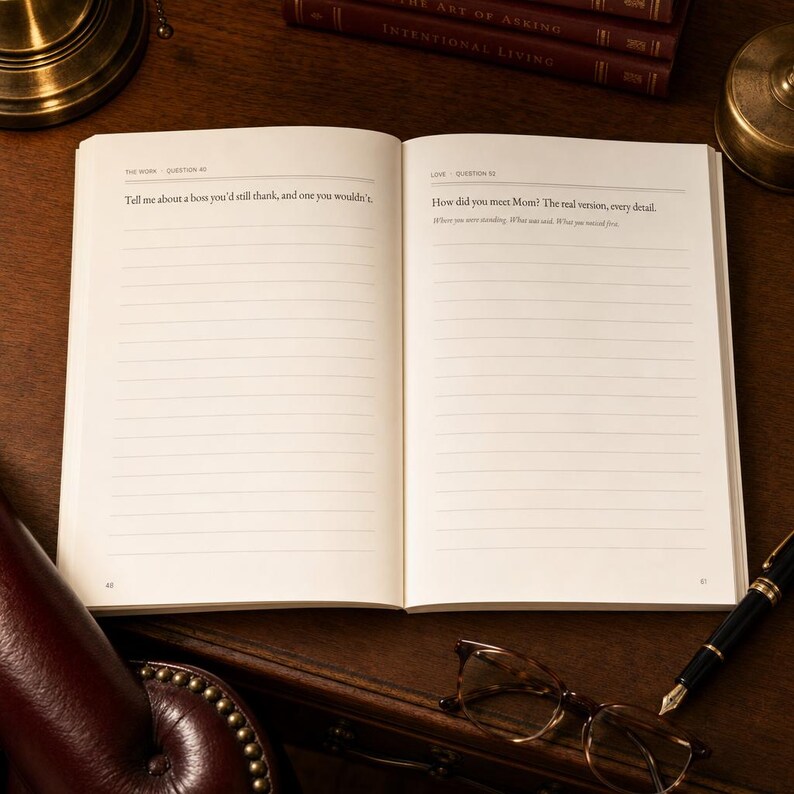 THE ART OF ASKING
INTENTIONAL LIVING
THE WORK · QUESTION 40
Tell me about a boss you'd still thank, and one you wouldn't.
48
LOVE · QUESTION 52
How did you meet Mom? The real version, every detail.
Where you were standing. What was said. What you noticed first.
61